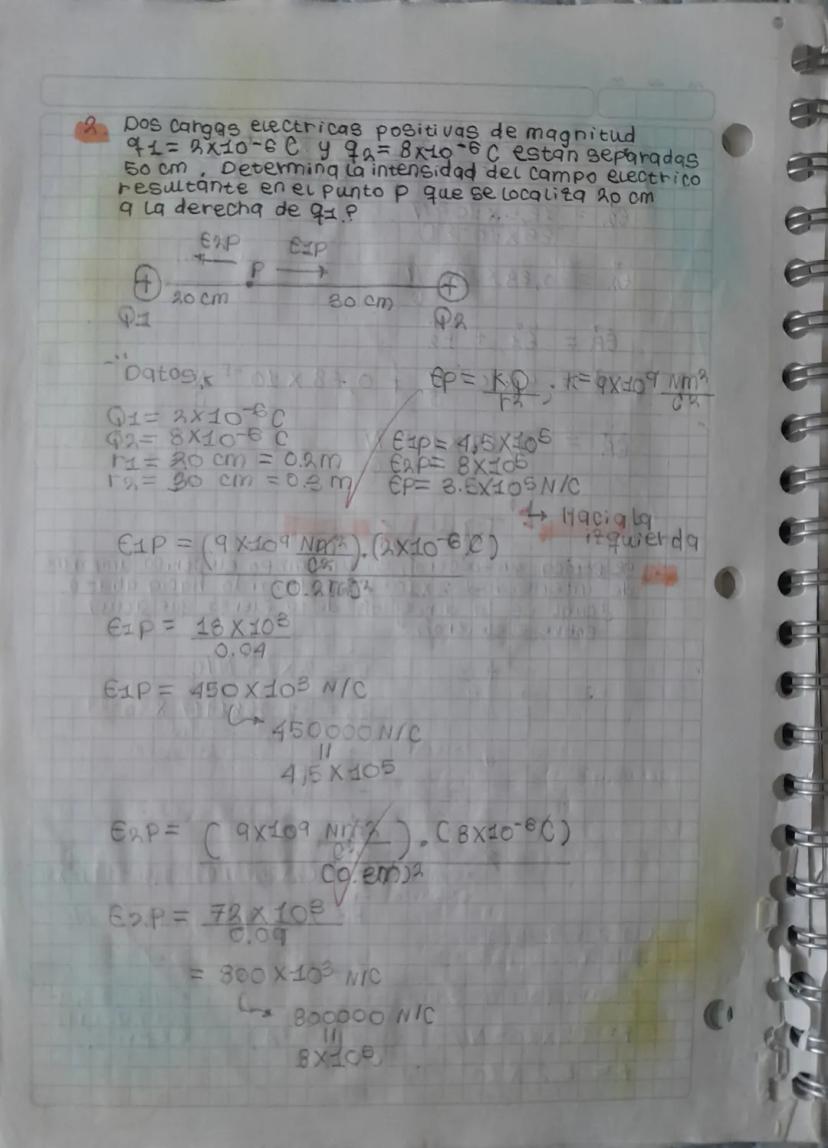 2. Dos cargas electricas positivas de magnitud
q1 = 2x10-6 C y q2 = 8x10-6 C están separadas
50 cm, Determina la intensidad del campo electrico
resultante en el punto P que se localiza 20 cm
a la derecha de q1?
E2P E1P
P
+ 20 cm 30 cm +
Q1 Q2
Datos
EP = KQ / r2 ; K = 9x109 Nm2 / C2
Q1 = 2x10-6 C
Q2 = 8x10-6 C
r1 = 20 cm = 0.2 m
r2 = 30 cm = 0.3 m
E1P = 4,5x105
E2P = 8x105
EP = 3.5x105 N/C
↳ Hacia la
izquierda
E1P = (9x109 Nm2/C2).(2x10-6 C)
E1P = 18x103
0.04
E1P = 450x103 N/C
↳ 450000 N/C
=
4,5x105
E2P = (9x109 Nm2/C2).(8x10-6 C)
(0.3m)2
E2P = 72x103
0.09
= 800x103 N/C
↳ 800000 N/C
=
8x105